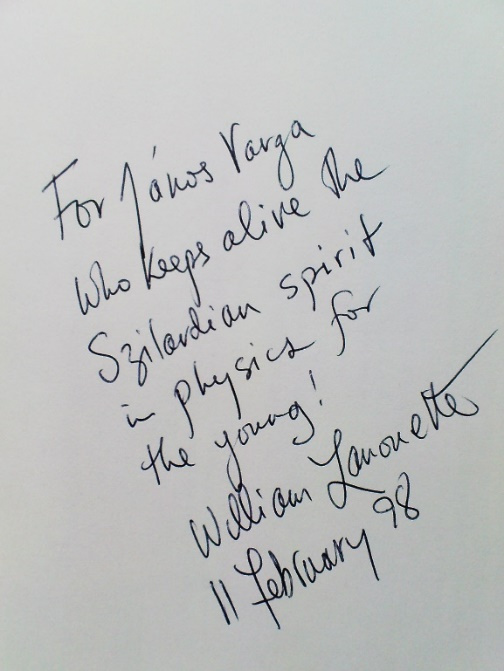 For János Varga
Who keeps alive the
Szilardian spirit
in physics for
the young!
William Lanouette
11 February 98